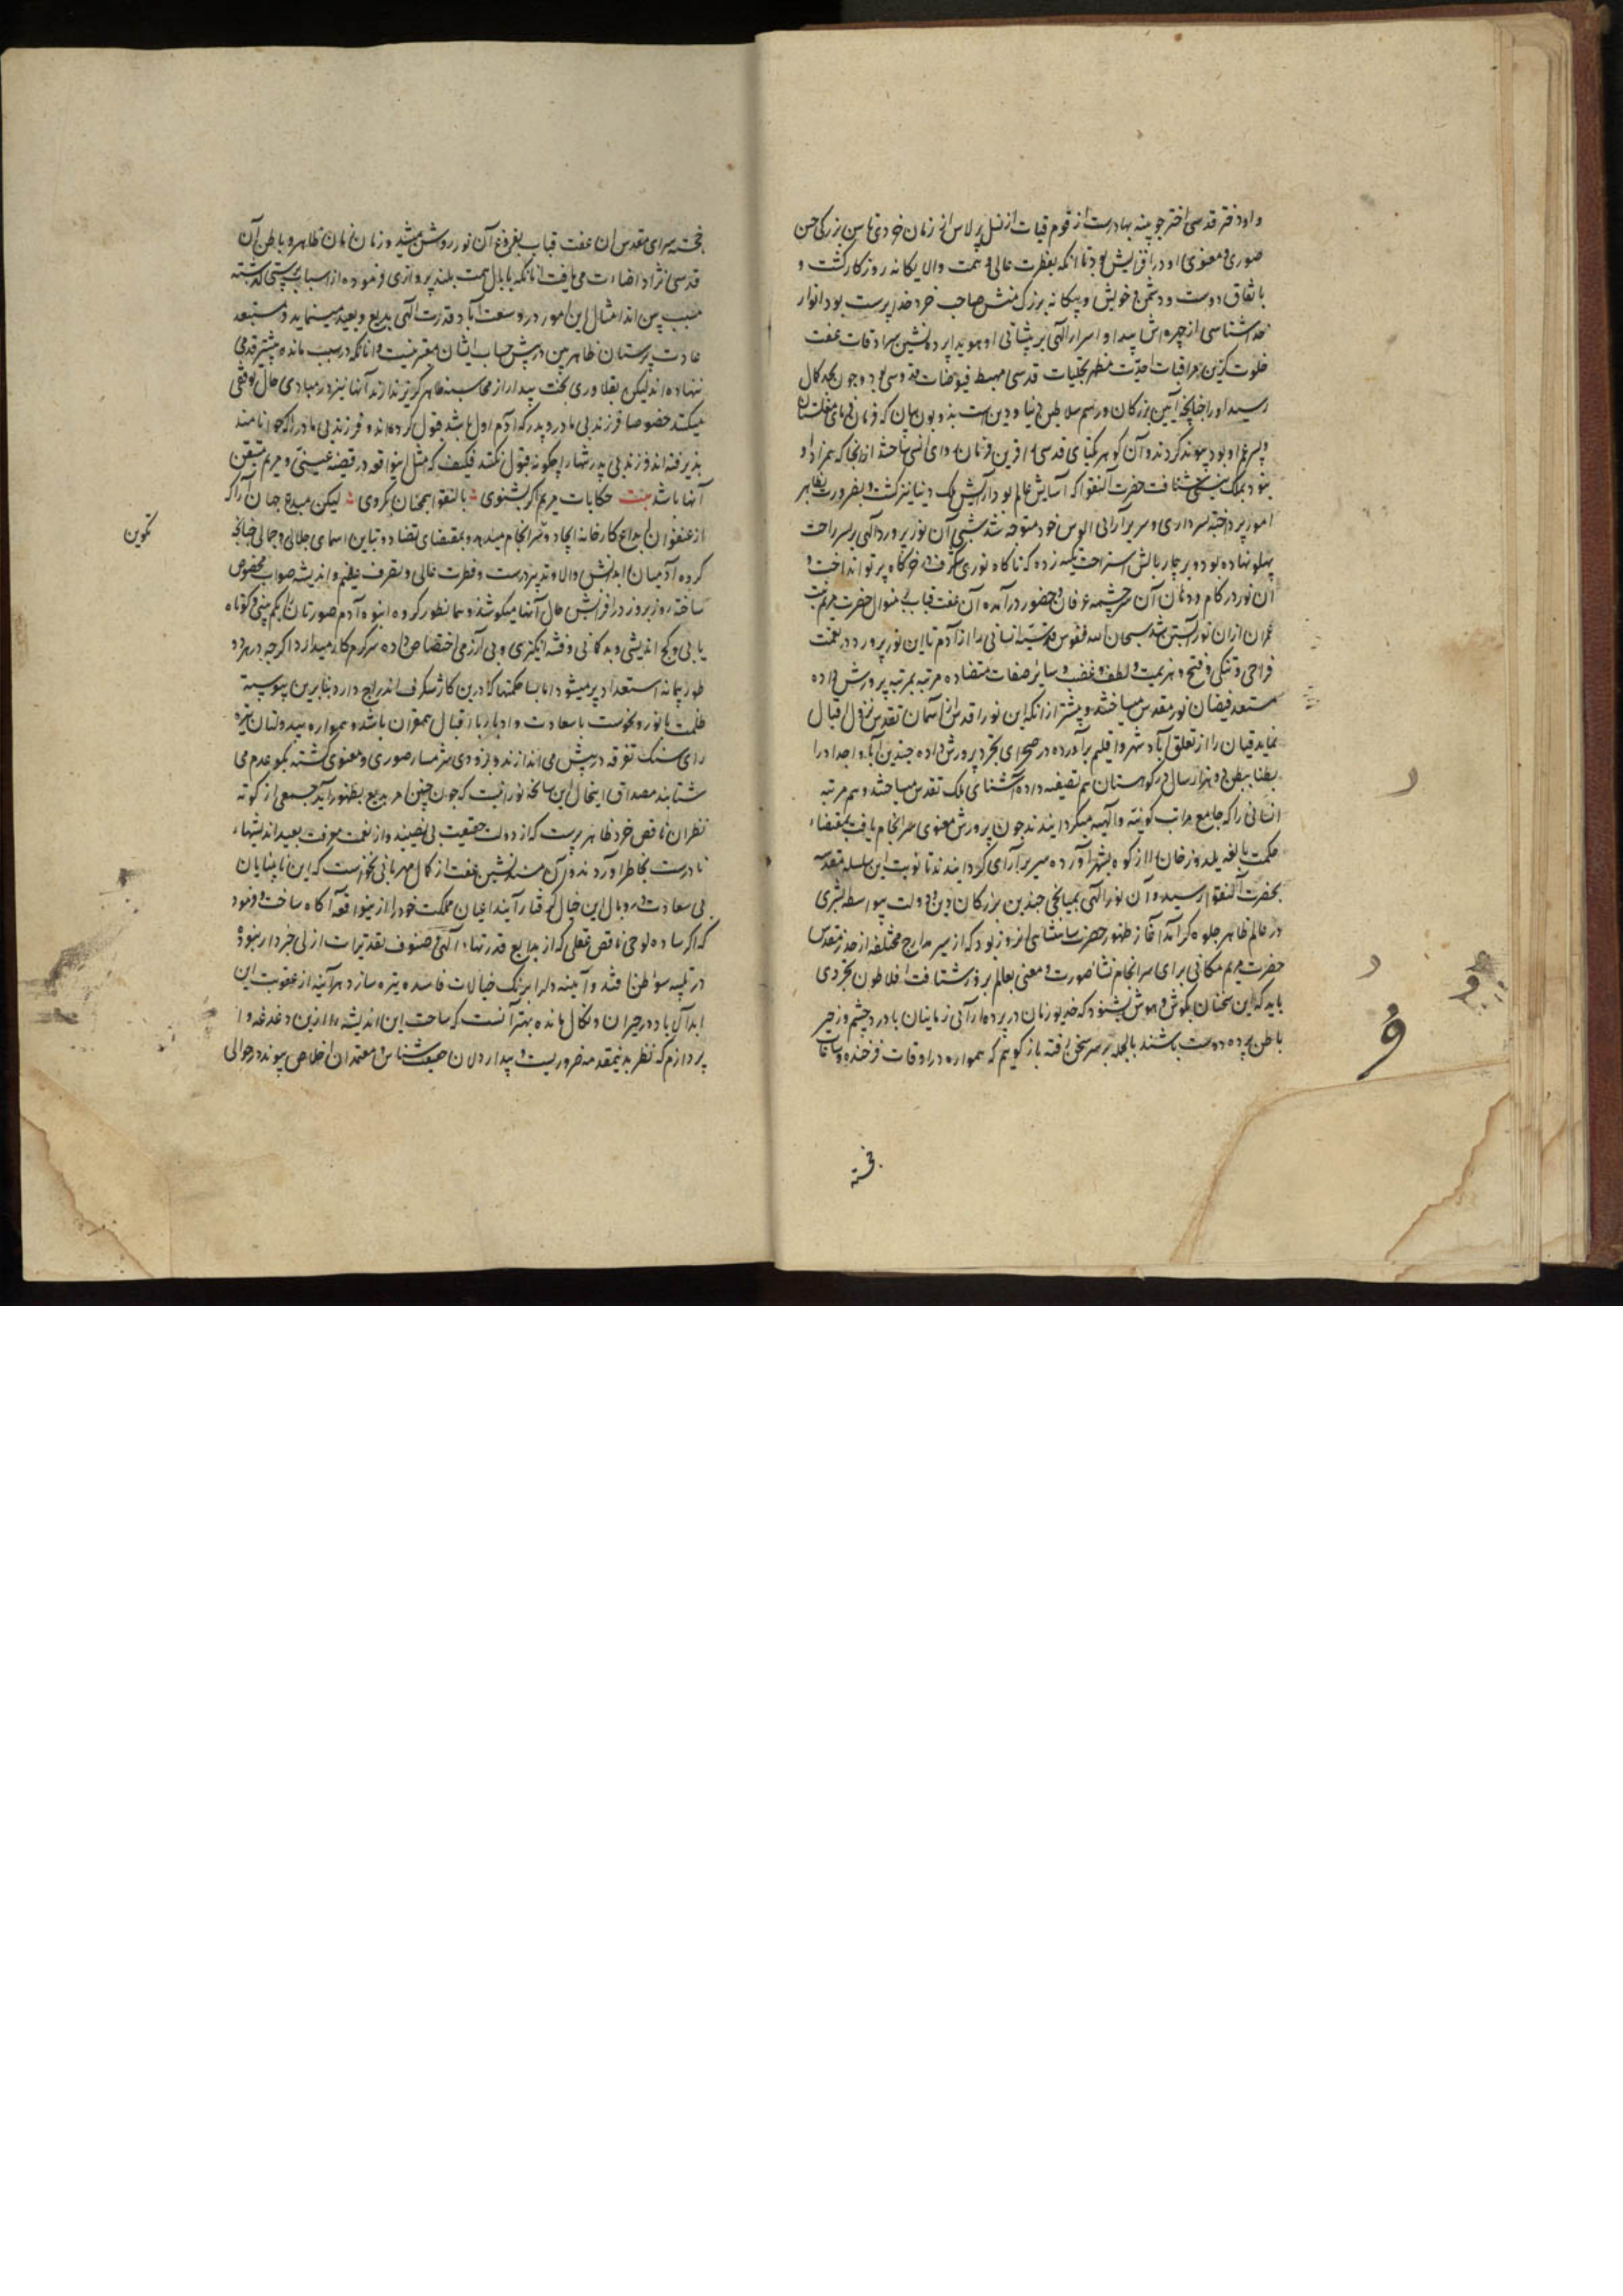 و او دختر قدسی اختر جوینه بهادرست از قوم قیات از نسل برلاس از زمان خردی تا سن بزرگی حسن
صوری و معنوی او در افزایش بود تا آنکه بفطرت عالی و همت والا یگانه روزگار گشت و
باتفاق دوست و دشمن و خویش و بیگانه بزرگ منش صاحب خرد خداپرست بود انوار
خداشناسی از چهره اش پیدا و اسرار الهی بر پیشانی او هویدا پرده نشین سرادقات عفت
خلوت گزین مراقبات احدیت مظهر تجلیات قدسی مهبط فیوضات قدوسی بود و چون بحد کمال
رسید او را چنانچه آیین بزرگان و رسم سلاطین دنیا و دین است بذوبون بیان که فرمان فرمای مغلستان
و پسر عم او بود پیوند کردند و آن گوهر یکتای قدسی را قرین فرمان روای انسی ساختند ازانجا که همزاد او
نبود بملک نیستی شتافت حضرت آلنقوا که آسایش عالم بود آرایش ملک دنیا نیز گشت و بضرورت بظاهر
امور پرداخته بسرداری و سریر آرائی الوس خود متوجه شد شبی آن نور پرورد الهی بر بستر راحت
پهلو نهاده بود و بر چار بالش استراحت تکیه زده که ناگاه نوری شگرف در خرگاه پرتو انداخت و
آن نور در کام و دهان آن سرچشمه عرفان و حضور درآمده آن عفت قباب بمنوال حضرت مریم بنت
عمران ازان نور آبستن شد سبحان الله نفوس قدسیه انسانی را از آدم تا این نور پرورد در نعمت
فراخی و تنگی و فتح و هزیمت و لطف و غضب و سایر صفات متضاده مرتبه بمرتبه پرورش داده
مستعد فیضان نور مقدس میساختند و پیشتر ازانکه این نور اقدس از آسمان تقدس نزول اقبال
نماید قیان را از تعلق آباد شهر و اقلیم برآورده در صحرای تجرد پرورش داده چندین آبا و اجداد را
بطنا ببطن دو هزار سال در کوهستان هم تصفیه داده آشنای ملک تقدس میساختند و هم مرتبه
انسانی را که جامع مراتب کونیه و الهیه میگردانیدند چون پرورش معنوی سرانجام یافت بمقتضاء
حکمت بالغه یلدوز خان را از کوه بشهر آورده سریر آرای گردانیدند تا نوبت این سلسله مقدسه
بحضرت آلنقوا رسید و آن نور الهی بمیانجی چندین بزرگان دین و دولت بیواسطه بشری
در عالم ظاهر جلوه گر آمد آغاز ظهور حضرت شاهنشاهی آنروز بود که از سیر مدارج مختلفه از خدر مقدس
حضرت مریم مکانی برای سرانجام نشاء صورت و معنی بعالم بروز شتافت افلاطون خردی
باید که این سخنان بگوش هوش بشنود که خدیو زمان در پرده آرائی زمانیان با درد چشم و زخیر
باطن پرده دوست باشند بالجمله بر سر سخن رفته بازگویم که همواره در اوقات فرخنده و ساعات
خجسته
خجسته سرای مقدس آن عفت قباب بفروغ آن نور روشن میشد و زمان زمان ظاهر و باطن آن
قدسی نژاد اضاءت می یافت آنانکه ببال همت بلند پروازی فرموده از اسباب پرستی گذشته
مسبب بین اند امثال این امور در وسعت آباد قدرت الهی بدیع و بعید نمینماید و مستبعد
عادت پرستان ظاهربین در پیش حساب ایشان معتبر نیست و آنانکه در سبب مانده پیشتر قدمی
ننهاده اند لیکن بقلاوزی بخت بیدار از محاسبه ظاهر گریز ندارند آنها نیز در مبادی حال توقفی
میکنند خصوصا فرزند بی مادر و پدر که آدم اول باشد قبول کرده اند و فرزند بی مادر را که حوا نامند
پذیرفته اند فرزند بی پدر تنها را چگونه قبول نکنند فکیف که مثل اینواقعه در قصه عیسی و مریم متیقن
آنها باشد بیت حکایات مریم اگر بشنوی بآلنقوا همچنان بگروی لیکن مبدع جهان آرا که
از عنفوان ابداع کارخانه ایجاد و سرانجام میدهد و بمقتضای تضاد و تباین اسمای جلالی و جمالی چنانچه
تکوین
گروه آدمیان را بدانش والا و تدبیر درست و فطرت عالی و تصرف عظیم و اندیشه صواب مخصوص
ساخته روز بروز در افزایش حال آنها میکوشد و همانطور گروه انبوه آدم صورتان را بکم بینی و کوتاه
یابی و کج اندیشی و بدگمانی و فتنه انگیزی و بی آزرمی اختصاص داده سرگرم کار میدارد اگرچه در هر دو
طور پیمانه استعداد پر میشود اما بسا حکمتها که درین کار شگرف اندراج دارد بنابرین پیوسته
ظلمت با نور و نحوست با سعادت و ادبار با اقبال همقران باشد و همواره بیدولتان تیره
رای سنگ تفرقه در پیش می اندازند و بزودی شرمسار صوری و معنوی گشته بکوی عدم می
شتابند مصداق اینحال این سانحه نورانیت که چون چنین امر بدیع بظهور آید جمعی از کوته
نظران ناقص خرد ظاهر پرست که از دولت حقیقت بی نصیبند و از نعمت معرفت بعید اندیشهاء
نادرست بخاطر آوردند و آن مسند نشین عفت از کمال مهربانی نخواست که این نابینایان
بی سعادت در وبال این خیال گرفتار آیند اعیان مملکت خود را ازینواقعه آگاه ساخت و فرمود
که اگر ساده لوحی ناقص عقلی که از بدایع قدرتهاء الهی و صنوف تقدیرات ازلی خبردار نبود
در تیه سوء ظن افتد و آیینه دل را بزنگ خیالات فاسده تیره سازد هر آینه از عقوبت این
ابد آباد در حیران و نکال مانده بهتر آنست که ساحت این اندیشه را ازین دغدغه وا
پردازم که نظر بدینمقدمه ضروریست و بیدار دلان حقیقت شناس و معتمدان اخلاص پیوند در حوالی